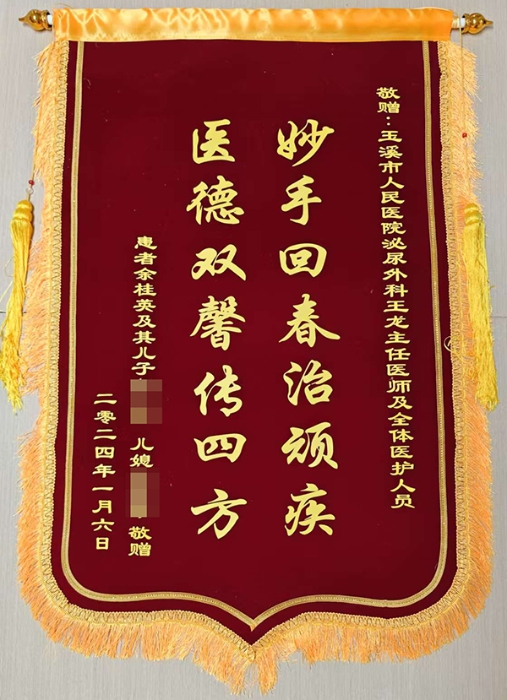 敬赠：玉溪市人民医院泌尿外科王龙主任医师及全体医护人员
妙手回春治顽疾
医德双馨传四方
患者余桂英及其儿子 儿媳 敬赠
二零二四年一月六日